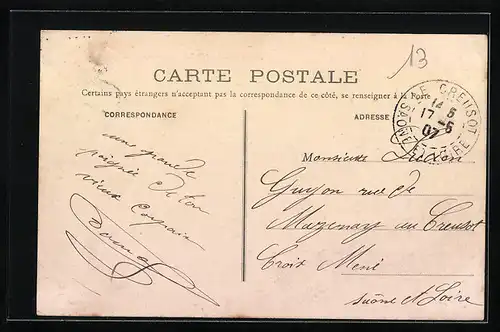 13
CARTE POSTALE
Certains pays étrangers n'acceptant pas la correspondance de ce côté, se renseigner à la Poste
CORRESPONDANCE
ADRESSE
LE CREUSOT
14 5
17 -5
07
SAONE ET LOIRE
une grande
poignée de ton
vieux Copain
Monsieur
Guyon rue de
Mazenay au Creusot
Croix Meni
Saône et Loire